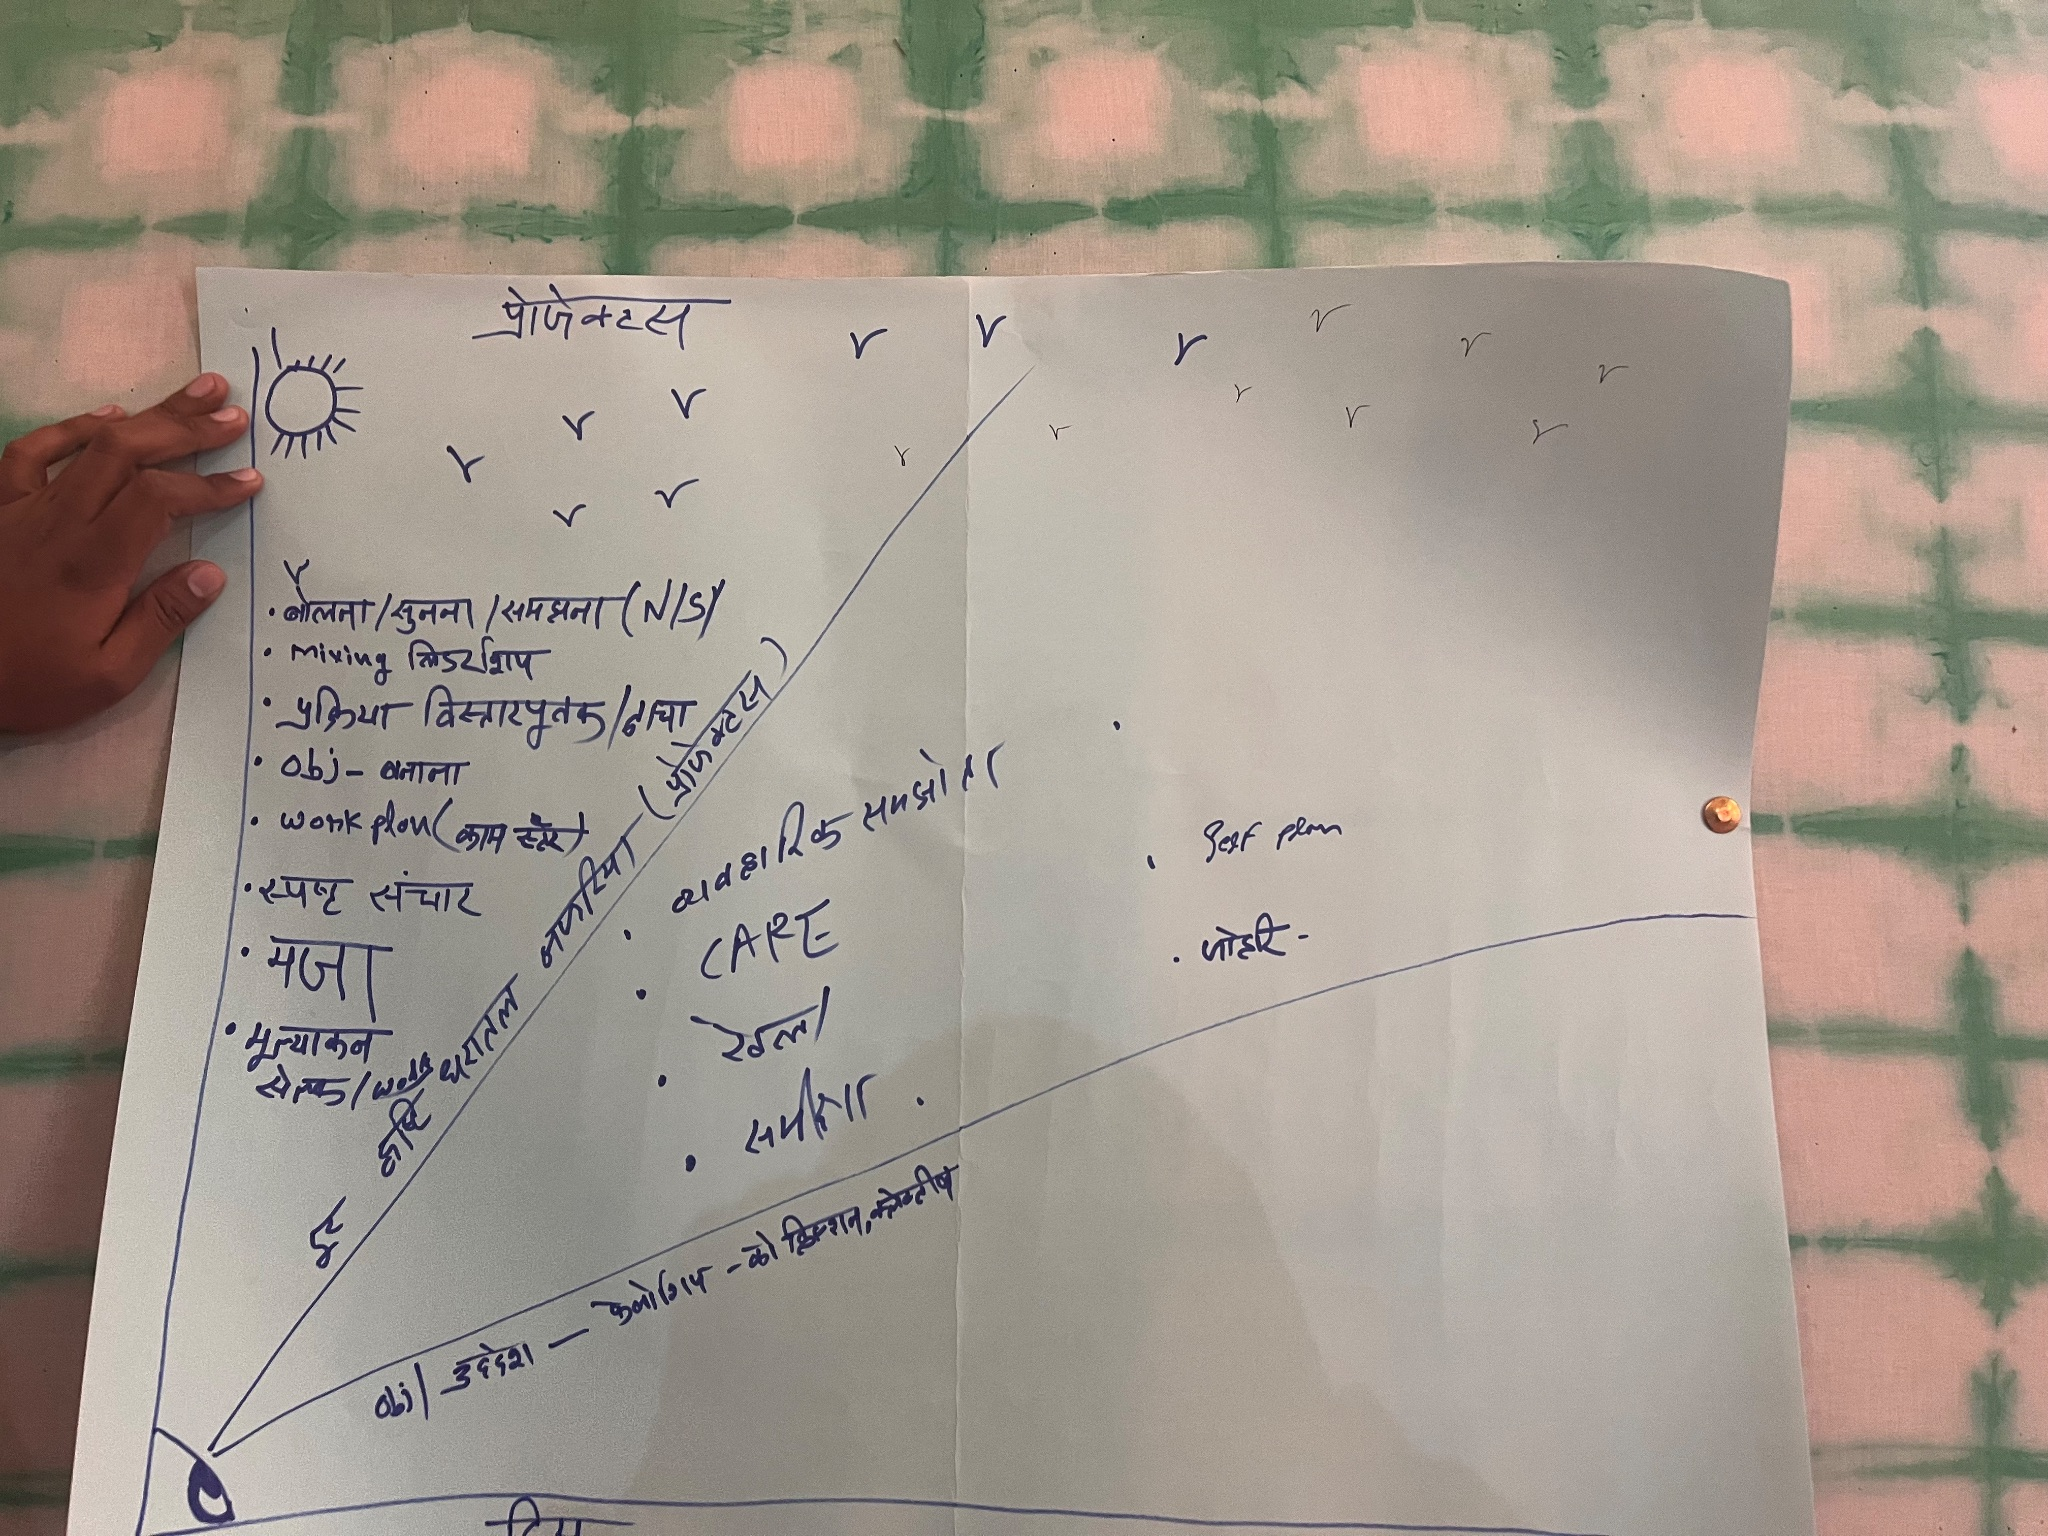 प्रोजेक्टस
• बोलना/सुनना/समझना (N/S)
• mixing लिडरशिप
• प्रक्रिया विस्तारपूतक/ढाचा
• obj - बनाना
• work plan (काम
• स्पष्ट संचार
• मजा
• मूल्याकन
सेल्फ/work
दृष्टि धरातल नजरिया (प्रोजेक्टस)
• व्यवहारिक समझोता
• CARE
• खेल
• समीक्षा
• Self plan
• जोहरि -
obj/ उद्देश —
टिम